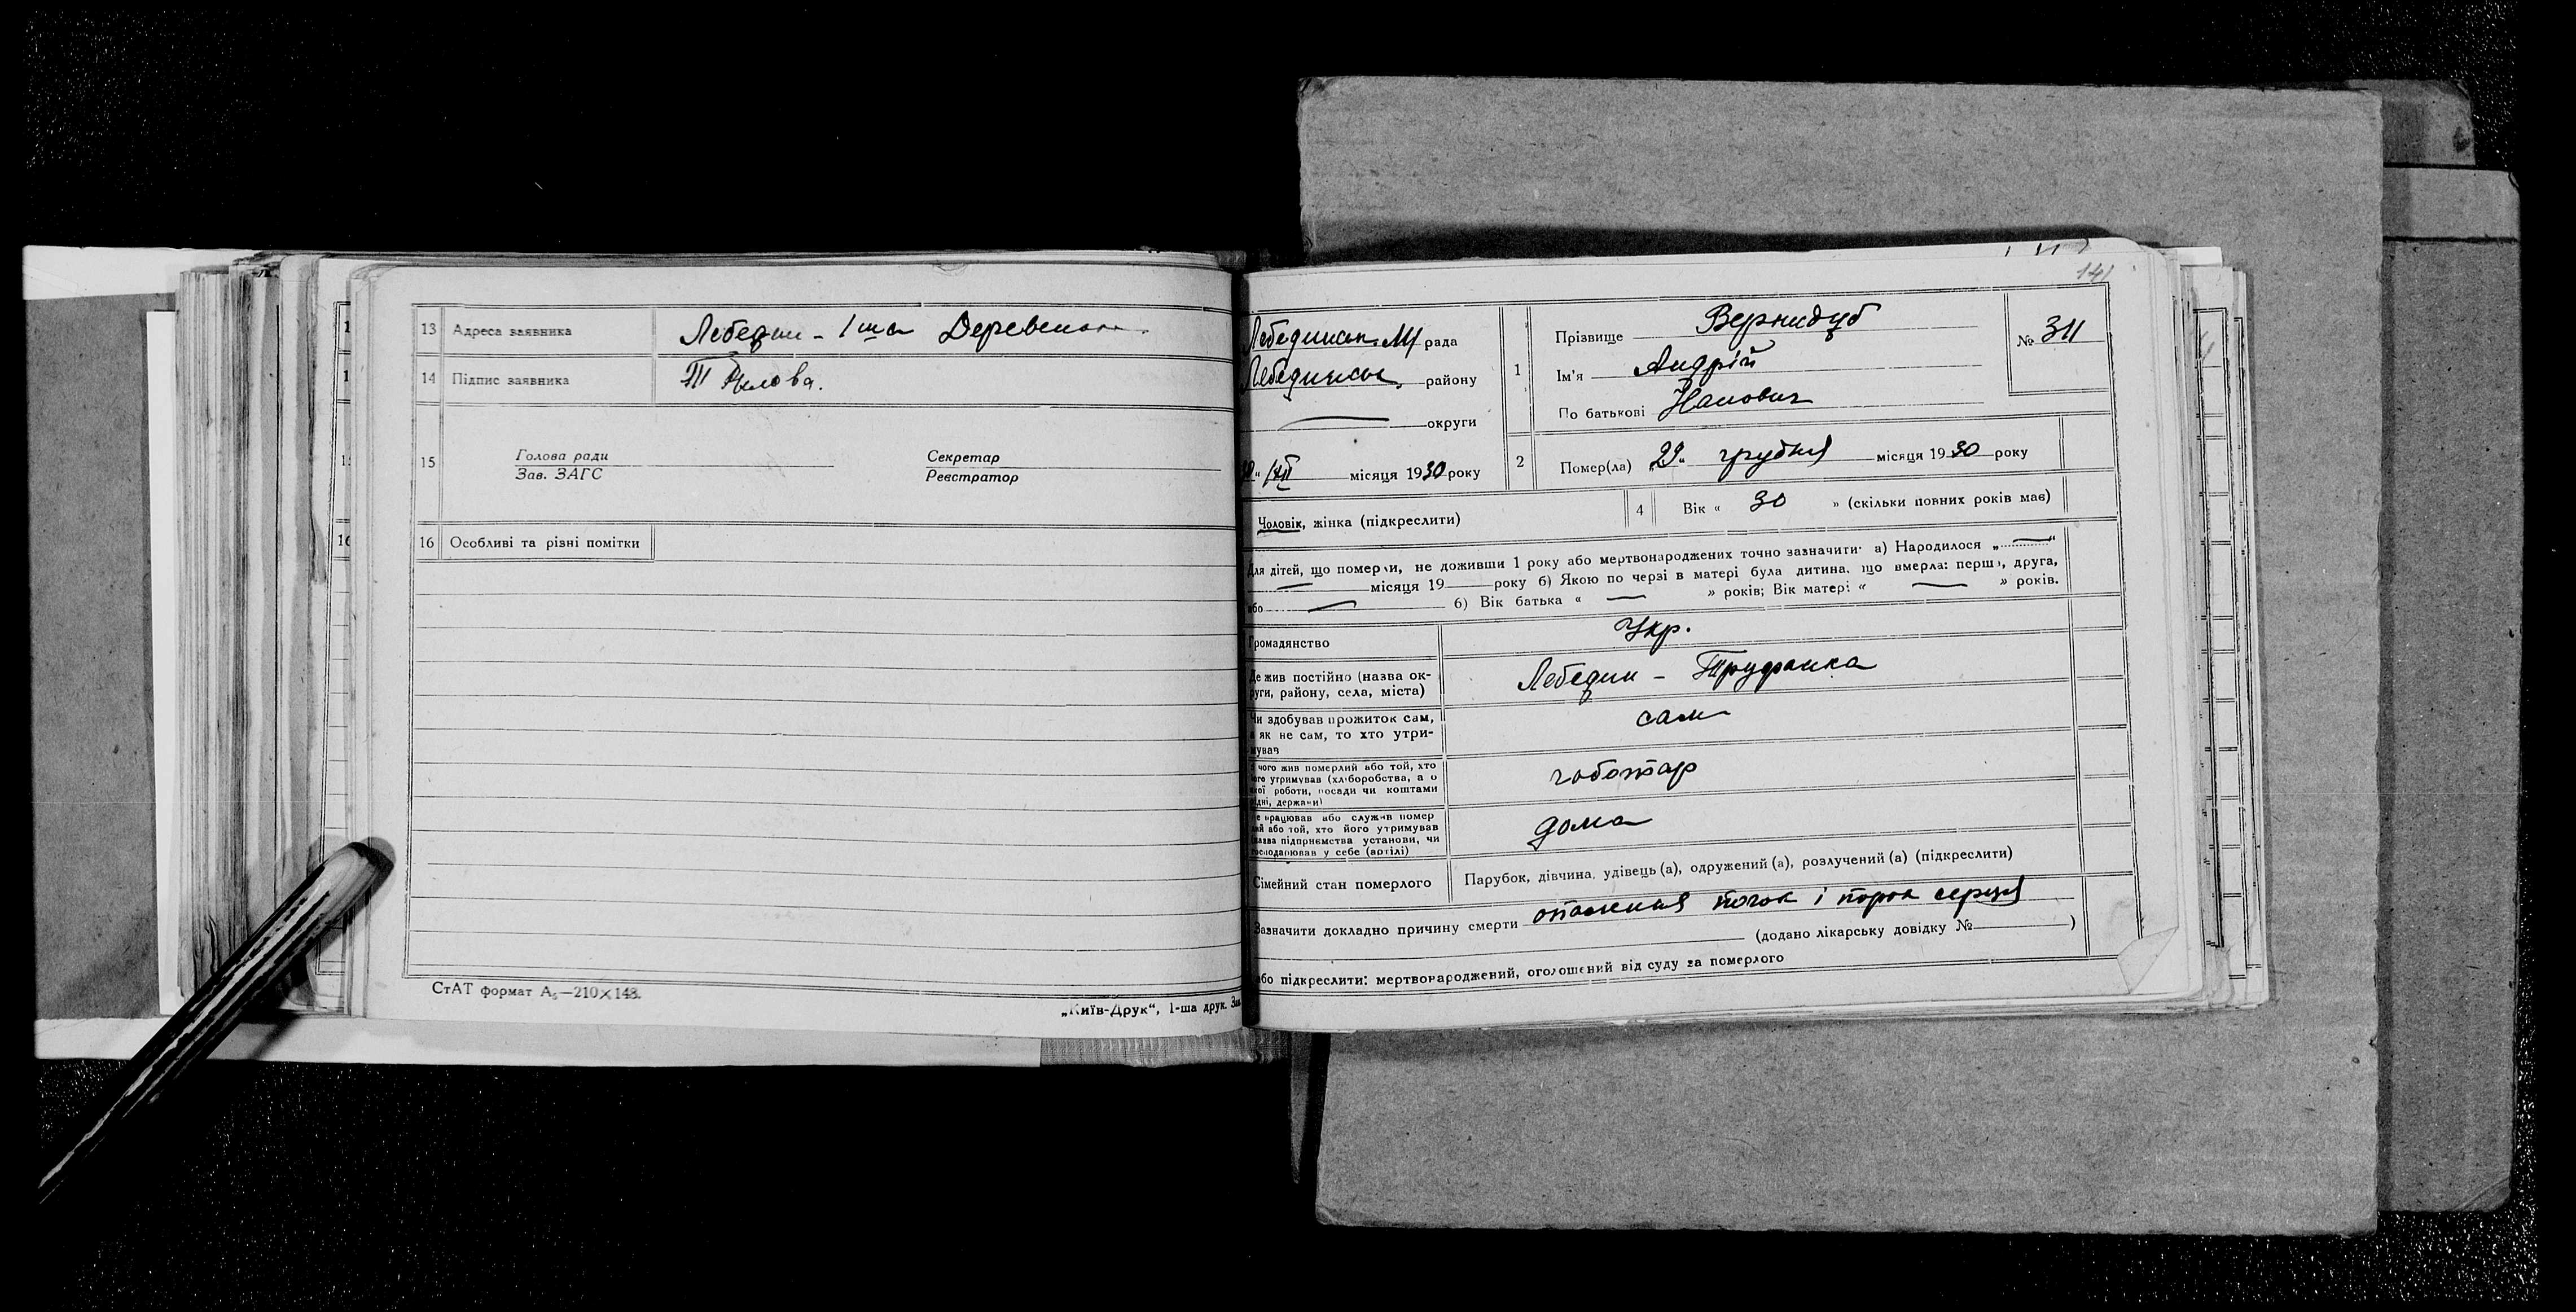 13 Адреса заявника Лебедин - 1ша Деревенск
14 Підпис заявника
15 Голова ради Секретар
Зав. ЗАГС Реєстратор
16 Особливі та різні помітки
СтАТ формат А₅—210×148.
„Київ-Друк“, 1-ша друк. Зам
141
Лебединськ. М рада
Лебединськ. району
округи
30 „ XII місяця 1930 року
1 Прізвище Вернидуб
Ім'я Андрій
По батькові
№ 311
2 Помер(ла) „29„ грудня місяця 1930 року
Чоловік, жінка (підкреслити)
4 Вік « 30 » (скільки повних років має)
Для дітей, що померли, не доживши 1 року або мертвонароджених точно зазначити: а) Народилося „ “
місяця 19 року б) Якою по черзі в матері була дитина, що вмерла: перша, друга,
або б) Вік батька « » років; Вік матері « » років.
Громадянство Укр.
Де жив постійно (назва ок-
руги, району, села, міста) Лебедин - Труфанка
Чи здобував прожиток сам,
а як не сам, то хто утри-
мував сам
З чого жив померлий або той, хто
його утримував (хліборобства, а о
якої роботи, посади чи коштами
рідні, держави) чоботар
Де працював або служив помер
лий або той, хто його утримував
(назва підприємства установи, чи
господарював у себе (артілі) дома
Сімейний стан померлого Парубок, дівчина, удівець(а), одружений(а), розлучений(а) (підкреслити)
Зазначити докладно причину смерти опаленія почок і порок серця
(додано лікарську довідку № )
або підкреслити: мертвонароджений, оголошений від суду за померлого